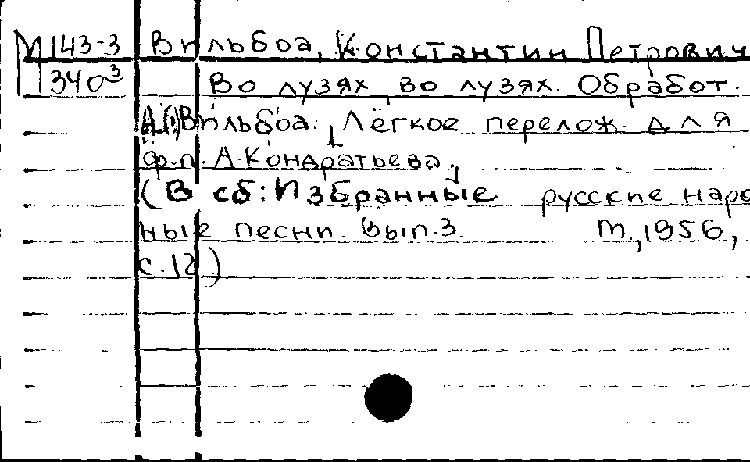 М143-3 Вильбоа, Константин Петрович
340³ Во лузях, во лузях. Обработ.
Вильбоа. Лёгкое перелож. для
ф.п. А. Кондратьева.
(В сб: Избранные русские наро
ные песни. Вып.3 М, 1956,
с.12)